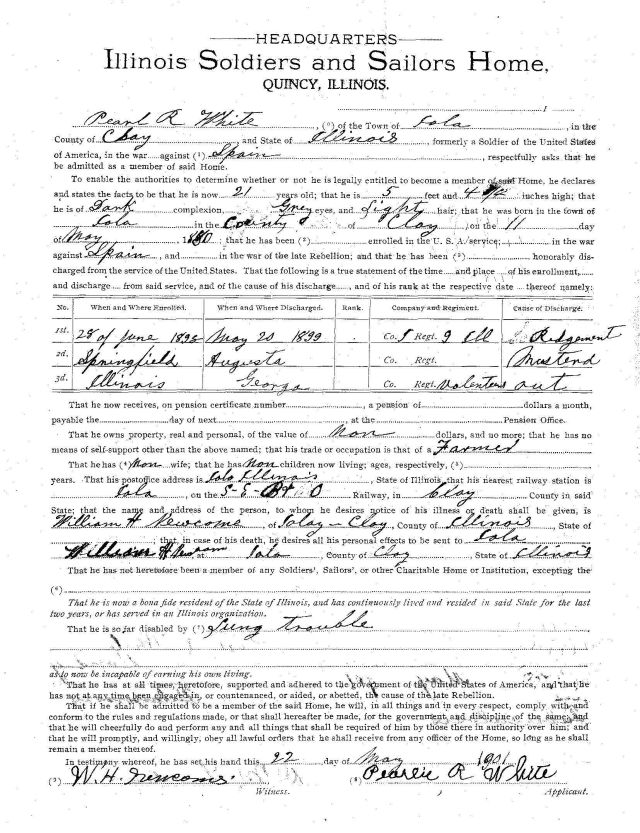 HEADQUARTERS
Illinois Soldiers and Sailors Home,
QUINCY, ILLINOIS.
1
Pearl R White, (°) of the Town of Iola, in the
County of Clay, and State of Illinois, formerly a Soldier of the United States
of America, in the war against (¹) Spain, respectfully asks that he
be admitted as a member of said Home.
To enable the authorities to determine whether or not he is legally entitled to become a member of said Home, he declares
and states the facts to be that he is now 21 years old; that he is 5 feet and 4 inches high; that
he is of Dark complexion, Grey eyes, and Light hair; that he was born in the town of
Iola in the County of Clay, on the 11 day
of May 1880; that he has been (²) enrolled in the U. S. A. service; in the war
against Spain, and in the war of the late Rebellion; and that he has been (²) honorably dis-
charged from the service of the United States. That the following is a true statement of the time and place of his enrollment,
and discharge from said service, and of the cause of his discharge, and of his rank at the respective date thereof namely:
No. When and Where Enrolled. When and Where Discharged. Rank. Company and Regiment. Cause of Discharge.
1st. 28 of June 1898 May 20 1899 Co. I Regt. 9 Ill Ridgement
2d. Springfield Augusta Co. Regt. Musterd
3d. Illinois Georga Co. Regt. Volenters out
That he now receives, on pension certificate number, a pension of dollars a month,
payable the day of next, at the Pension Office.
That he owns property, real and personal, of the value of Non dollars, and no more; that he has no
means of self-support other than the above named; that his trade or occupation is that of a Farmer
That he has (⁴) Non wife; that he has Non children now living; ages, respectively, (⁵)
years. That his postoffice address is Iola Illinois, State of Illinois, that his nearest railway station is
Iola, on the Railway, in Clay County in said
State; that the name and address of the person, to whom he desires notice of his illness or death shall be given, is
William H Newcome, of Iola - Clay, County of Illinois, State of
; that, in case of his death, he desires all his personal effects to be sent to Iola
William H at Iola, County of Clay, State of Illinois
That he has not heretofore been a member of any Soldiers', Sailors', or other Charitable Home or Institution, excepting the
(⁶)
That he is now a bona fide resident of the State of Illinois, and has continuously lived and resided in said State for the last
two years, or has served in an Illinois organization.
That he is so far disabled by (⁷) Lung trouble
as to now be incapable of earning his own living.
That he has at all times, heretofore, supported and adhered to the government of the United States of America, and that he
has not at any time been engaged in, or countenanced, or aided, or abetted, the cause of the late Rebellion.
That if he shall be admitted to be a member of the said Home, he will, in all things and in every respect, comply with and
conform to the rules and regulations made, or that shall hereafter be made, for the government and discipline of the same, and
that he will cheerfully do and perform any and all things that shall be required of him by those there in authority over him; and
that he will promptly, and willingly, obey all lawful orders that he shall receive from any officer of the Home, so long as he shall
remain a member thereof.
In testimony whereof, he has set his hand this 22 day of May 1901
W. H. Newcome. Pearlie R White
Witness. Applicant.